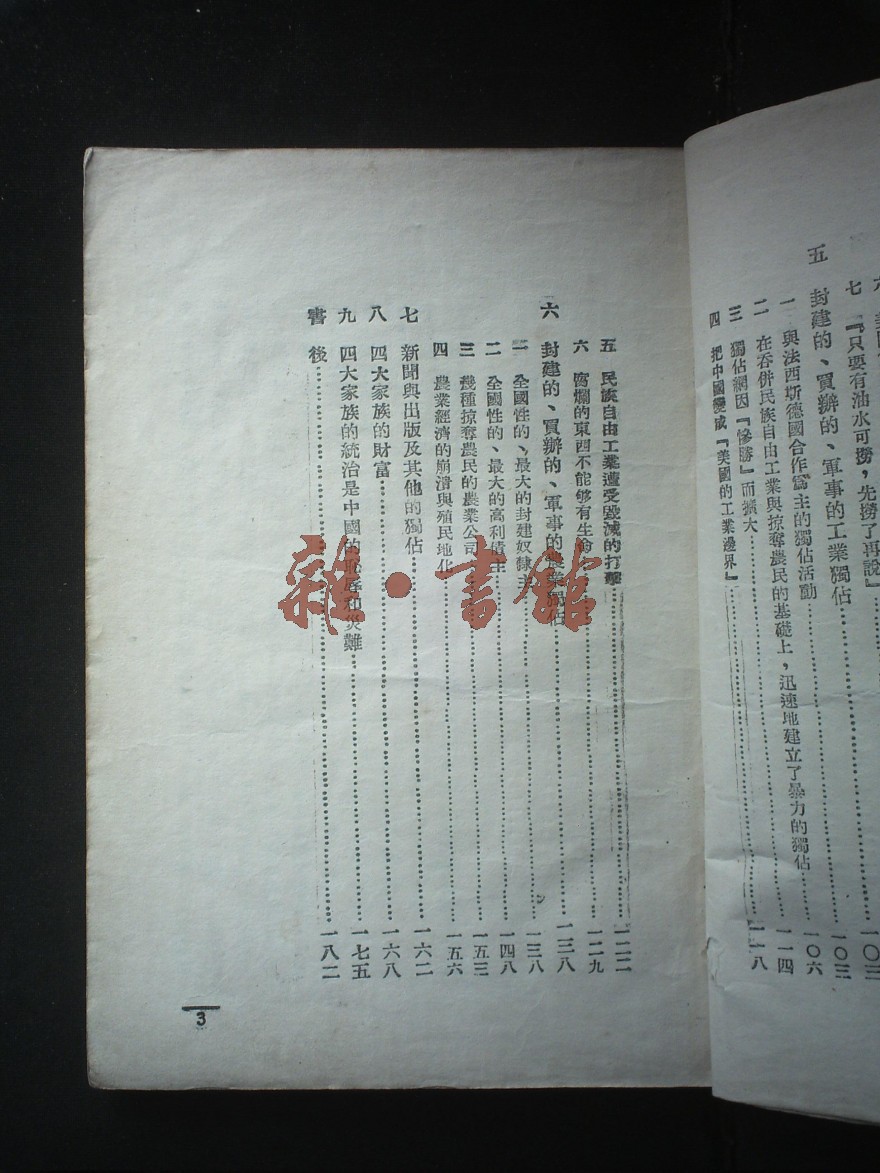 七 『只要有油水可撈，先撈了再說』……一〇三
五 封建的、買辦的、軍事的工業獨佔……一〇三
一 與法西斯德國合作爲主的獨佔活動……一〇六
二 在吞併民族自由工業與掠奪農民的基礎上，迅速地建立了暴力的獨佔……一一四
三 獨佔網因『慘勝』而擴大……一一八
四 把中國變成『美國的工業邊界』
五 民族自由工業遭受毀滅的打擊……一二二
六 腐爛的東西不能够有生命……一二九
六 封建的、買辦的、軍事的農業獨佔……一三八
一 全國性的、最大的封建奴隸主……一三八
二 全國性的、最大的高利債主……一四八
三 幾種掠奪農民的農業公司……一五三
四 農業經濟的崩潰與殖民地化……一五六
七 新聞與出版及其他的獨佔……一六二
八 四大家族的財富……一六八
九 四大家族的統治是中國的恥辱和災難……一七五
書後……一八二
3
雜·書館